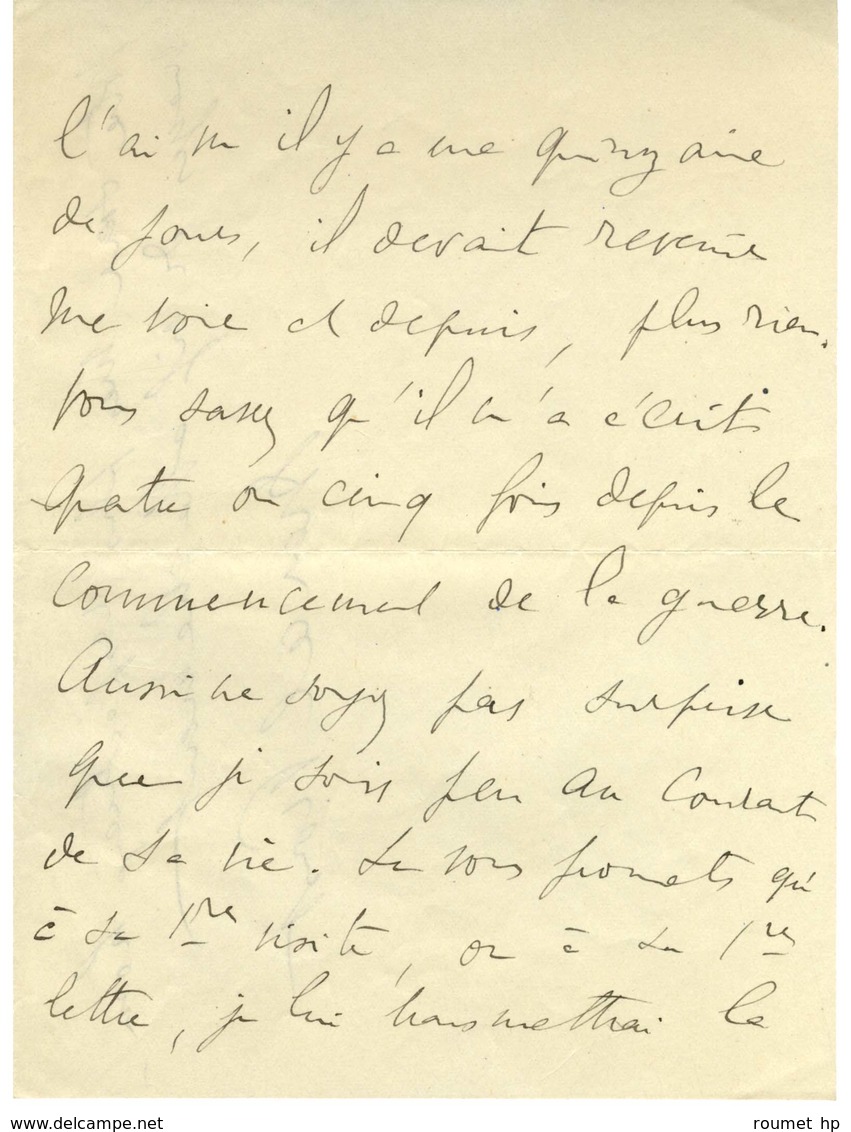 l'ai vu il y a une quinzaine
de jours, il devait revenir
me voir et depuis, plus rien.
vous savez qu'il m'a écrit
quatre ou cinq fois depuis le
commencement de la guerre.
Aussi ne soyez pas surprise
que je sois peu au courant
de sa vie. Je vous promets qu'
à sa 1re visite, ou à sa 1re
lettre, je lui transmettrai la
www.delcampe.net
roumet hp